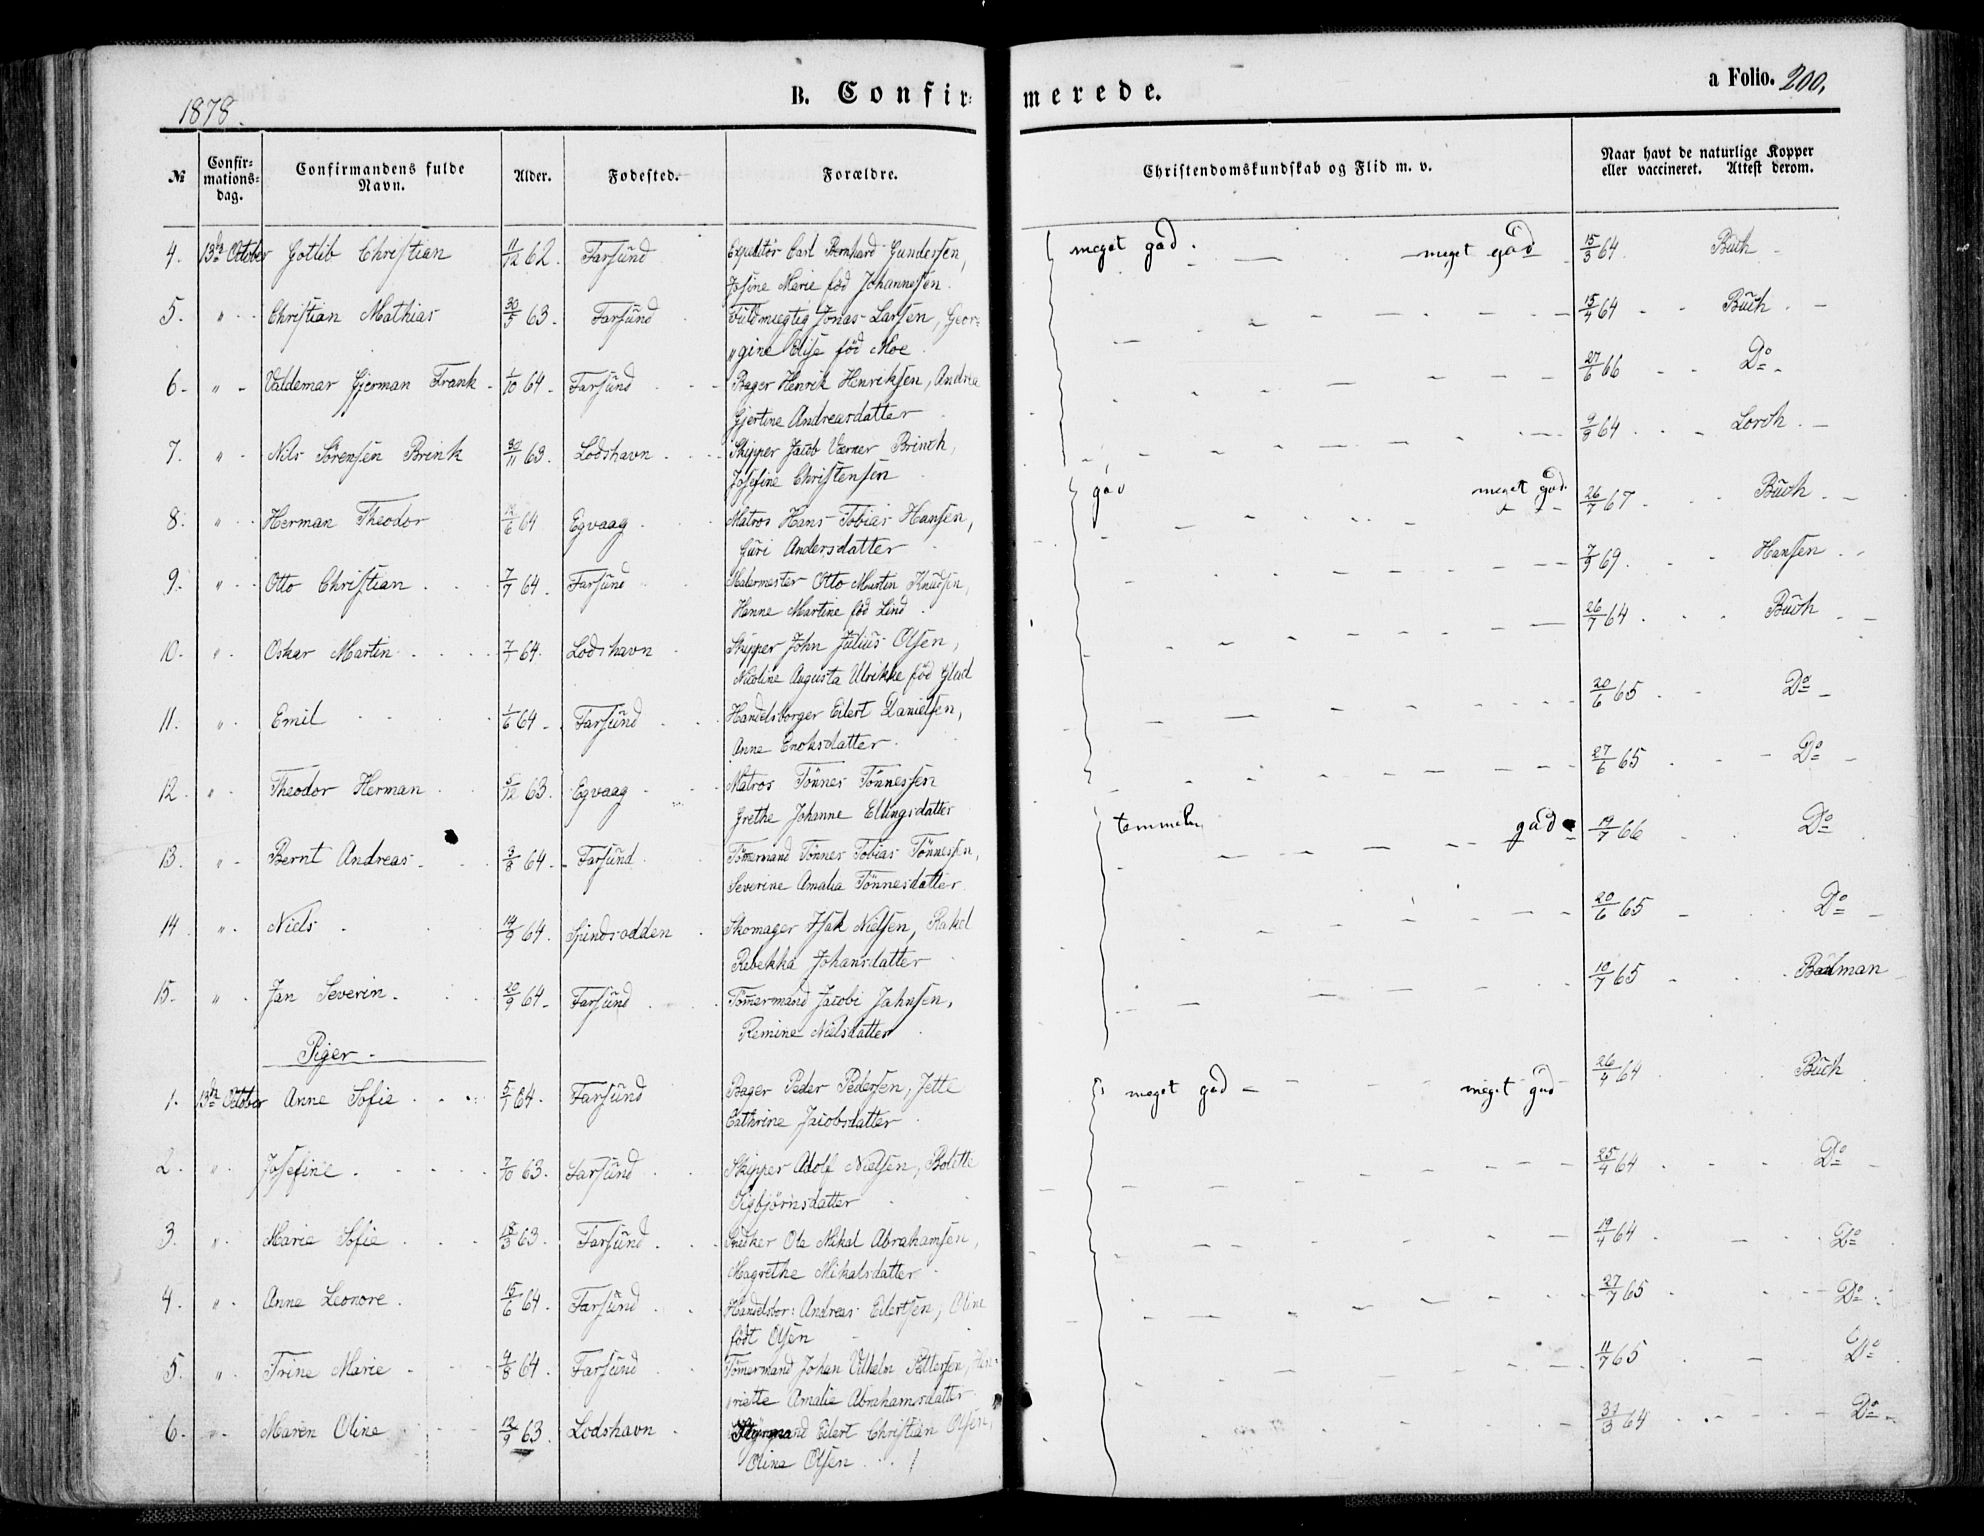 1878.
B. Confirmerede.
a Folio. 200.
№ Confirmationsdag. Confirmandens fulde Navn. Alder. Fødested. Forældre. Christendomskundskab og Flid m. v. Naar havt de naturlige Kopper eller vaccineret. Attest derom.
4. 13de October Gotlib Christian 11/12 62. Farsund Expeditør Carl Bernhard Gundersen, meget god. meget god 15/3 64. Buch
Josine Marie fød Johannessen.
5. " Christian Mathias 30/5 63. Farsund Fuldmægtig Jonas Larsen, Geor- 15/4 64 Buch
"gine Elise fød Moe.
6. " Valdemar Hjerman Frank 1/10 64. Farsund Bager Henrik Henriksen, Andrea 27/6 66 Do
Gjertine Andreasdatter
7. " Nils Sörensen Brink 30/11 63. Lodshavn Skipper Jacob Værner Brinch, 9/9 64. Lorch.
Josefine Christensen
8. " Herman Theodor /6 64 Egvaag. Matros Hans Tobias Hansen, god meget god 26/7 67 Buch
Guri Andersdatter
9. " Otto Christian 7/7 64. Farsund Malermester Otto Martin Knudsen, 7/9 69. Hansen
Hanne Martine fød Lind.
10. " Oskar Martin 7/7 64. Lodshavn Skipper John Julius Olsen, 26/7 64 Buch
Nicoline Augusta Ulrikke fød Glad
11. " Emil 1/6 64. Farsund Handelsborger Eilert Danielsen, 20/6 65 Do
Anne Enoksdatter.
12. " Theodor Herman 5/12 63. Egvaag Matros Tönnes Tönnessen 27/6 65 Do
Grethe Johanne Ellingsdatter
13. " Bernt Andreas 3/8 64. Farsund Tömermand Tönnes Tobias Tönnessen, temmelig god 19/7 66 Do
Severine Amalia Tönnesdatter
14. " Niels 14/9 64. Spindsodden Skomager Isak Nielsen, Rakel 20/6 65 Do
Rebekka Johansdatter
15. " Jan Severin. 20/9 64. Farsund Tömermand Jacobi Jahnsen, 10/7 65 Bœdman
Remine Nielsdatter
Piger.
1. 13de October Anne Sofie 5/7 64. Farsund Bager Peder Pedersen, Jette meget god meget god 26/4 64 Buch
Cathrine Jacobsdatter
2. " Josefine 7/10 63. Farsund Skipper Adolf Nielsen, Bolette 25/4 64 Do
Sigbjørnsdatter
3. " Marie Sofie 18/3 63. Farsund. Snedker Ole Mikal Abrahamsen, 19/4 64 Do
Magrethe Mikalsdatter
4. " Anne Leonore. 15/6 64. Farsund Handelsbor: Andreas Eilertsen, Oline 27/7 65 Do
født Olsen
5. " Trine Marie 4/8 64. Farsund Tömermand Johan Vilhelm Pettersen, Hen- 11/7 65 Do
riette Amalie Abrahamsdatter
6. " Maren Oline 12/9 63. Lodshavn Styrmand Eilert Christian Olsen, 31/3 64 Do
Olina Olsen